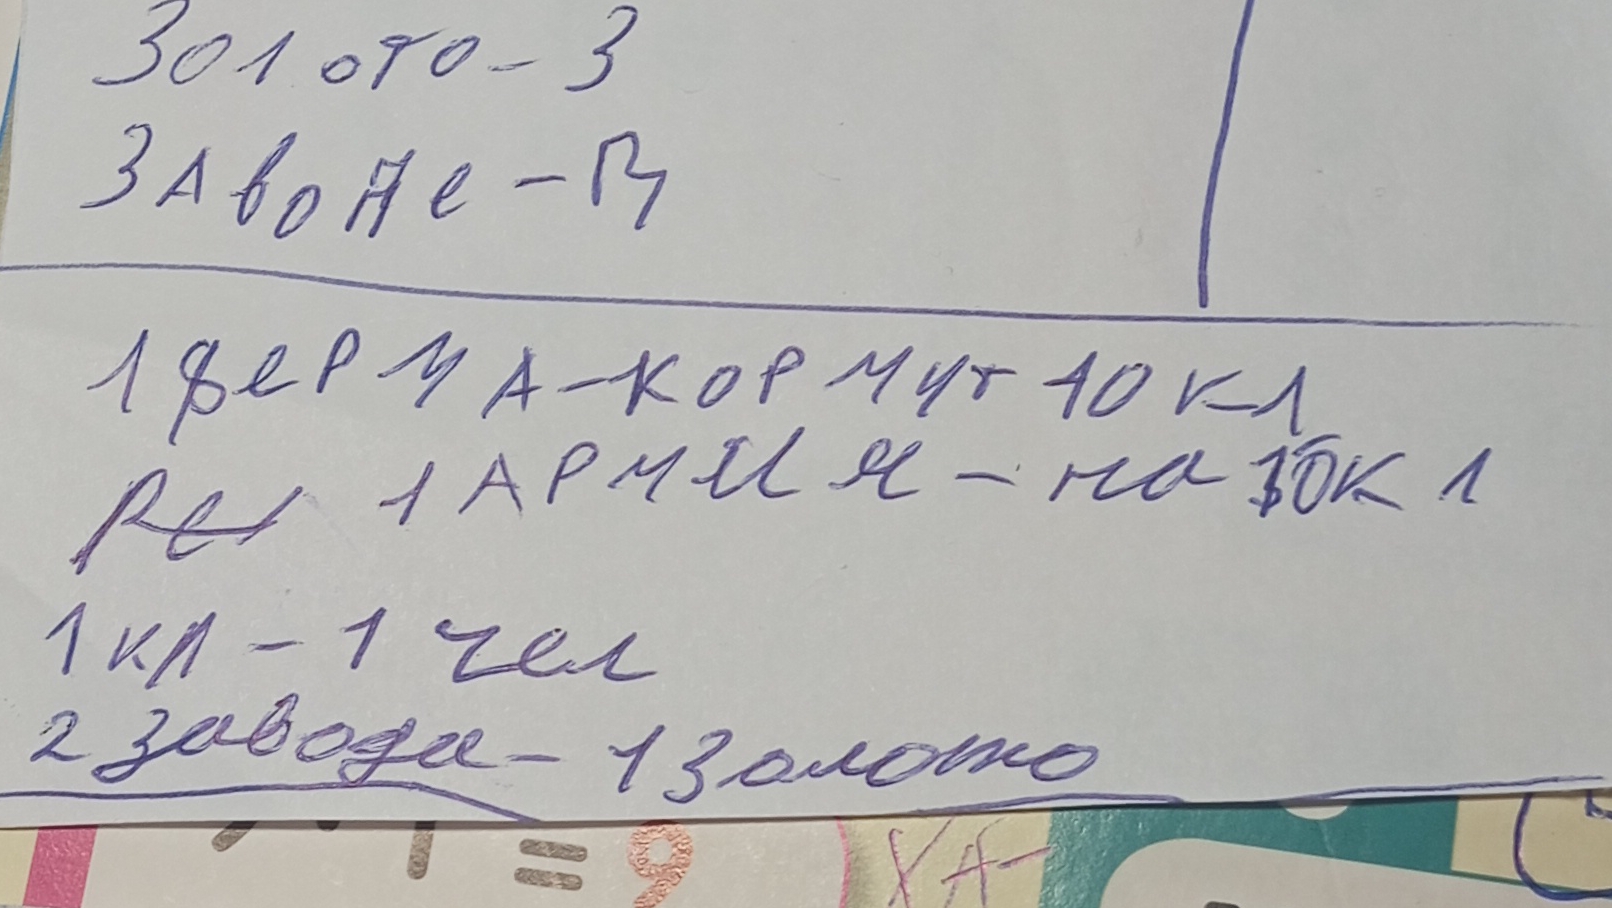 Золото - З
Заводе - П
1 ферма - кормит 10 кл
1 Армия - на 10 кл
1 кл - 1 чел
2 завода - 1 золото
= 9
ХА-